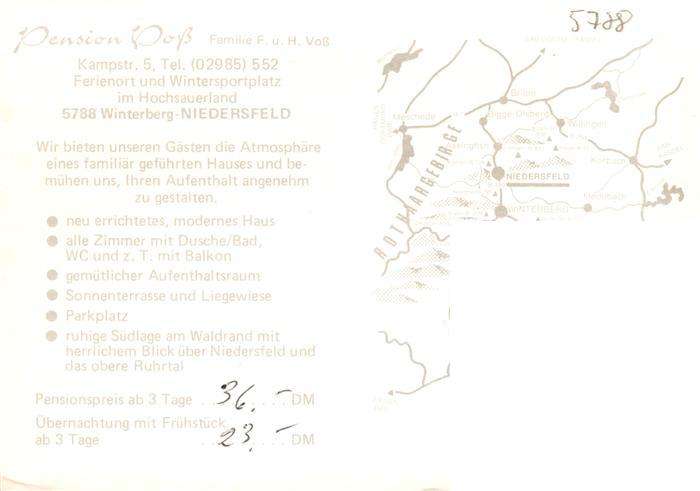 Pension Voß Familie F. u. H. Voß
Kampstr. 5, Tel. (02985) 552
Ferienort und Wintersportplatz
im Hochsauerland
5788 Winterberg-NIEDERSFELD
Wir bieten unseren Gästen die Atmosphäre
eines familiär geführten Hauses und be-
mühen uns, Ihren Aufenthalt angenehm
zu gestalten.
● neu errichtetes, modernes Haus
● alle Zimmer mit Dusche/Bad,
WC und z. T. mit Balkon
● gemütlicher Aufenthaltsraum
● Sonnenterrasse und Liegewiese
● Parkplatz
● ruhige Südlage am Waldrand mit
herrlichem Blick über Niedersfeld und
das obere Ruhrtal
Pensionspreis ab 3 Tage . . 36,- . . DM
Übernachtung mit Frühstück
ab 3 Tage . . 23,- . . DM
5788
Brilon
Meschede
Willingen
Korbach
NIEDERSFELD
Medebach
WINTERBERG
ROTHAARGEBIRGE